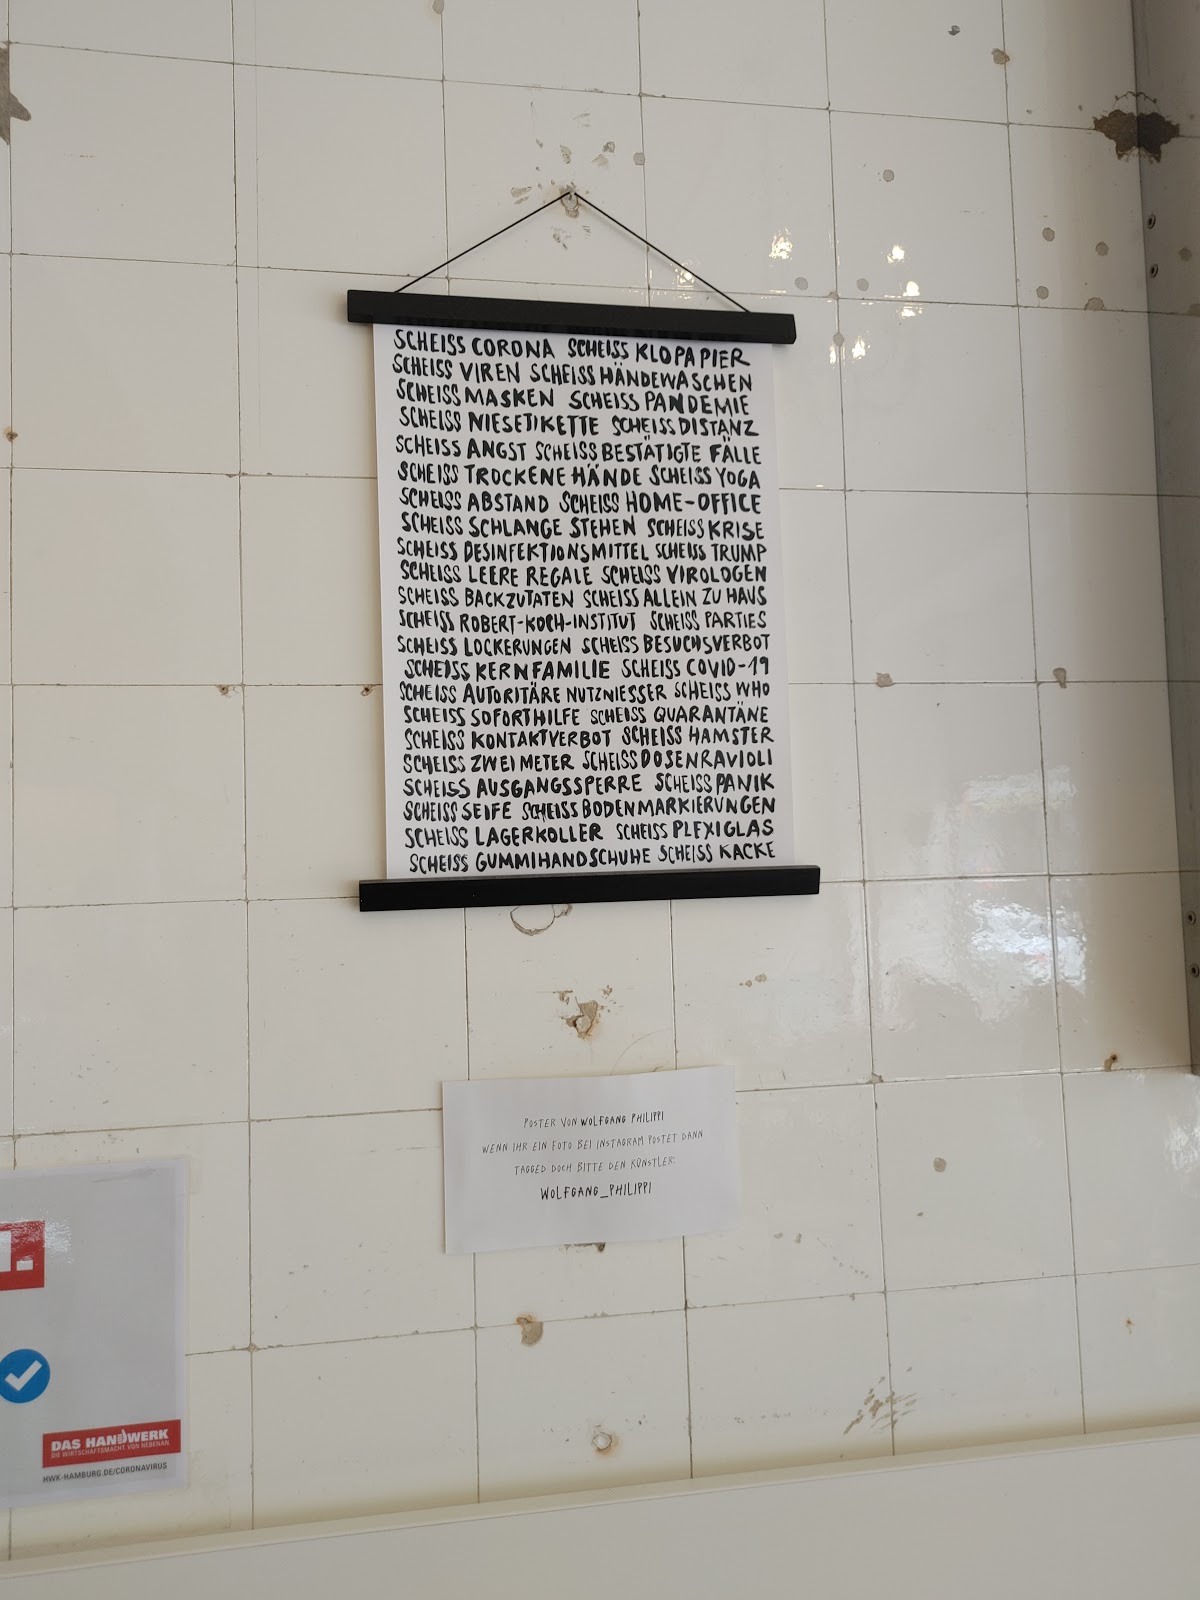 SCHEISS CORONA SCHEISS KLOPAPIER
SCHEISS VIREN SCHEISS HÄNDEWASCHEN
SCHEISS MASKEN SCHEISS PANDEMIE
SCHEISS NIESETIKETTE SCHEISS DISTANZ
SCHEISS ANGST SCHEISS BESTÄTIGTE FÄLLE
SCHEISS TROCKENE HÄNDE SCHEISS YOGA
SCHEISS ABSTAND SCHEISS HOME-OFFICE
SCHEISS SCHLANGE STEHEN SCHEISS KRISE
SCHEISS DESINFEKTIONSMITTEL SCHEISS TRUMP
SCHEISS LEERE REGALE SCHEISS VIROLOGEN
SCHEISS BACKZUTATEN SCHEISS ALLEIN ZU HAUS
SCHEISS ROBERT-KOCH-INSTITUT SCHEISS PARTIES
SCHEISS LOCKERUNGEN SCHEISS BESUCHSVERBOT
SCHEISS KERNFAMILIE SCHEISS COVID-19
SCHEISS AUTORITÄRE NUTZNIESSER SCHEISS WHO
SCHEISS SOFORTHILFE SCHEISS QUARANTÄNE
SCHEISS KONTAKTVERBOT SCHEISS HAMSTER
SCHEISS ZWEI METER SCHEISS DOSENRAVIOLI
SCHEISS AUSGANGSSPERRE SCHEISS PANIK
SCHEISS SEIFE SCHEISS BODENMARKIERUNGEN
SCHEISS LAGERKOLLER SCHEISS PLEXIGLAS
SCHEISS GUMMIHANDSCHUHE SCHEISS KACKE
POSTER VON WOLFGANG PHILIPPI
WENN IHR EIN FOTO BEI INSTAGRAM POSTET DANN
TAGGED DOCH BITTE DEN KÜNSTLER:
WOLFGANG_PHILIPPI
DAS HANDWERK
DIE WIRTSCHAFTSMACHT. VON NEBENAN.
HWK-HAMBURG.DE/CORONAVIRUS